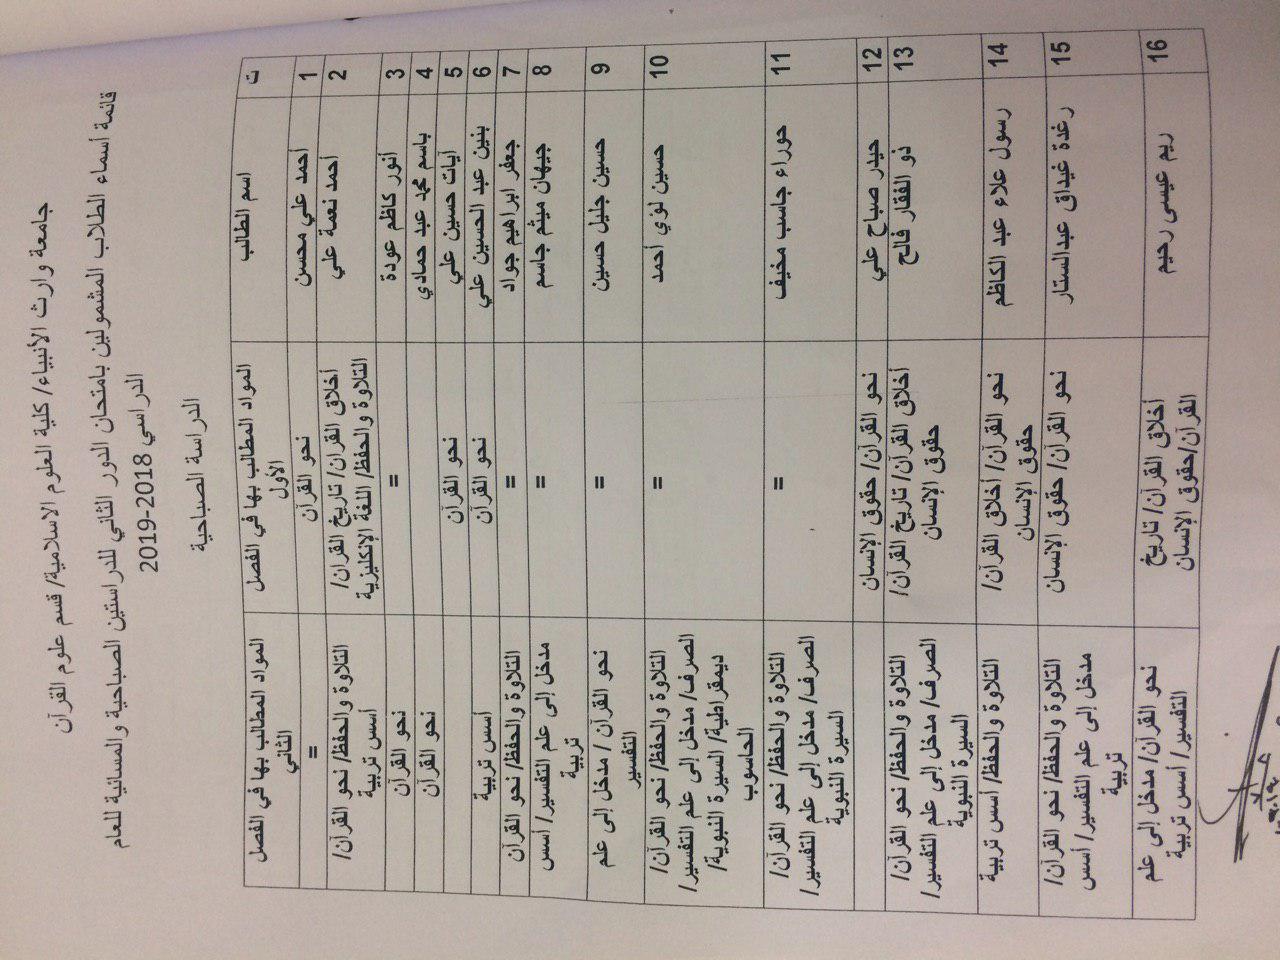 جامعة وارث الأنبياء/ كلية العلوم الاسلامية/ قسم علوم القرآن
قائمة أسماء الطلاب المشمولين بامتحان الدور الثاني للدراستين الصباحية والمسائية للعام
الدراسي 2018-2019
الدراسة الصباحية
ت اسم الطالب المواد المطالب بها في الفصل المواد المطالب بها في الفصل
الأول الثاني
1 أحمد علي محسن نحو القرآن =
2 أحمد نعمة علي أخلاق القرآن/ تاريخ القرآن/ التلاوة والحفظ/ نحو القرآن/
التلاوة والحفظ/ اللغة الإنكليزية أسس تربية
3 أنور كاظم عودة = نحو القرآن
4 باسم محمد عبد حمادي نحو القرآن
5 آيات حسين علي نحو القرآن
6 بنين عبد الحسين علي نحو القرآن أسس تربية
7 جعفر ابراهيم جواد = التلاوة والحفظ/ نحو القرآن
8 جيهان ميثم جاسم = مدخل إلى علم التفسير/ أسس
تربية
9 حسين جليل حسين = نحو القرآن / مدخل إلى علم
التفسير
10 حسين لؤي أحمد = التلاوة والحفظ/ نحو القرآن/
الصرف/ مدخل إلى علم التفسير/
ديمقراطية/ السيرة النبوية/
الحاسوب
11 حوراء جاسب مخيف = التلاوة والحفظ/ نحو القرآن/
الصرف/ مدخل إلى علم التفسير/
السيرة النبوية
12 حيدر صباح علي نحو القرآن/ حقوق الإنسان
13 ذو الفقار فالح أخلاق القرآن/ تاريخ القرآن/ التلاوة والحفظ/ نحو القرآن/
حقوق الإنسان الصرف/ مدخل إلى علم التفسير/
السيرة النبوية
14 رسول علاء عبد الكاظم نحو القرآن/ أخلاق القرآن/ التلاوة والحفظ/ أسس تربية
حقوق الإنسان
15 رغدة غيداق عبدالستار نحو القرآن/ حقوق الإنسان التلاوة والحفظ/ نحو القرآن/
مدخل إلى علم التفسير/ أسس
تربية
16 ريم عيسى رحيم أخلاق القرآن/ تاريخ نحو القرآن/ مدخل إلى علم
القرآن/حقوق الإنسان التفسير/ أسس تربية